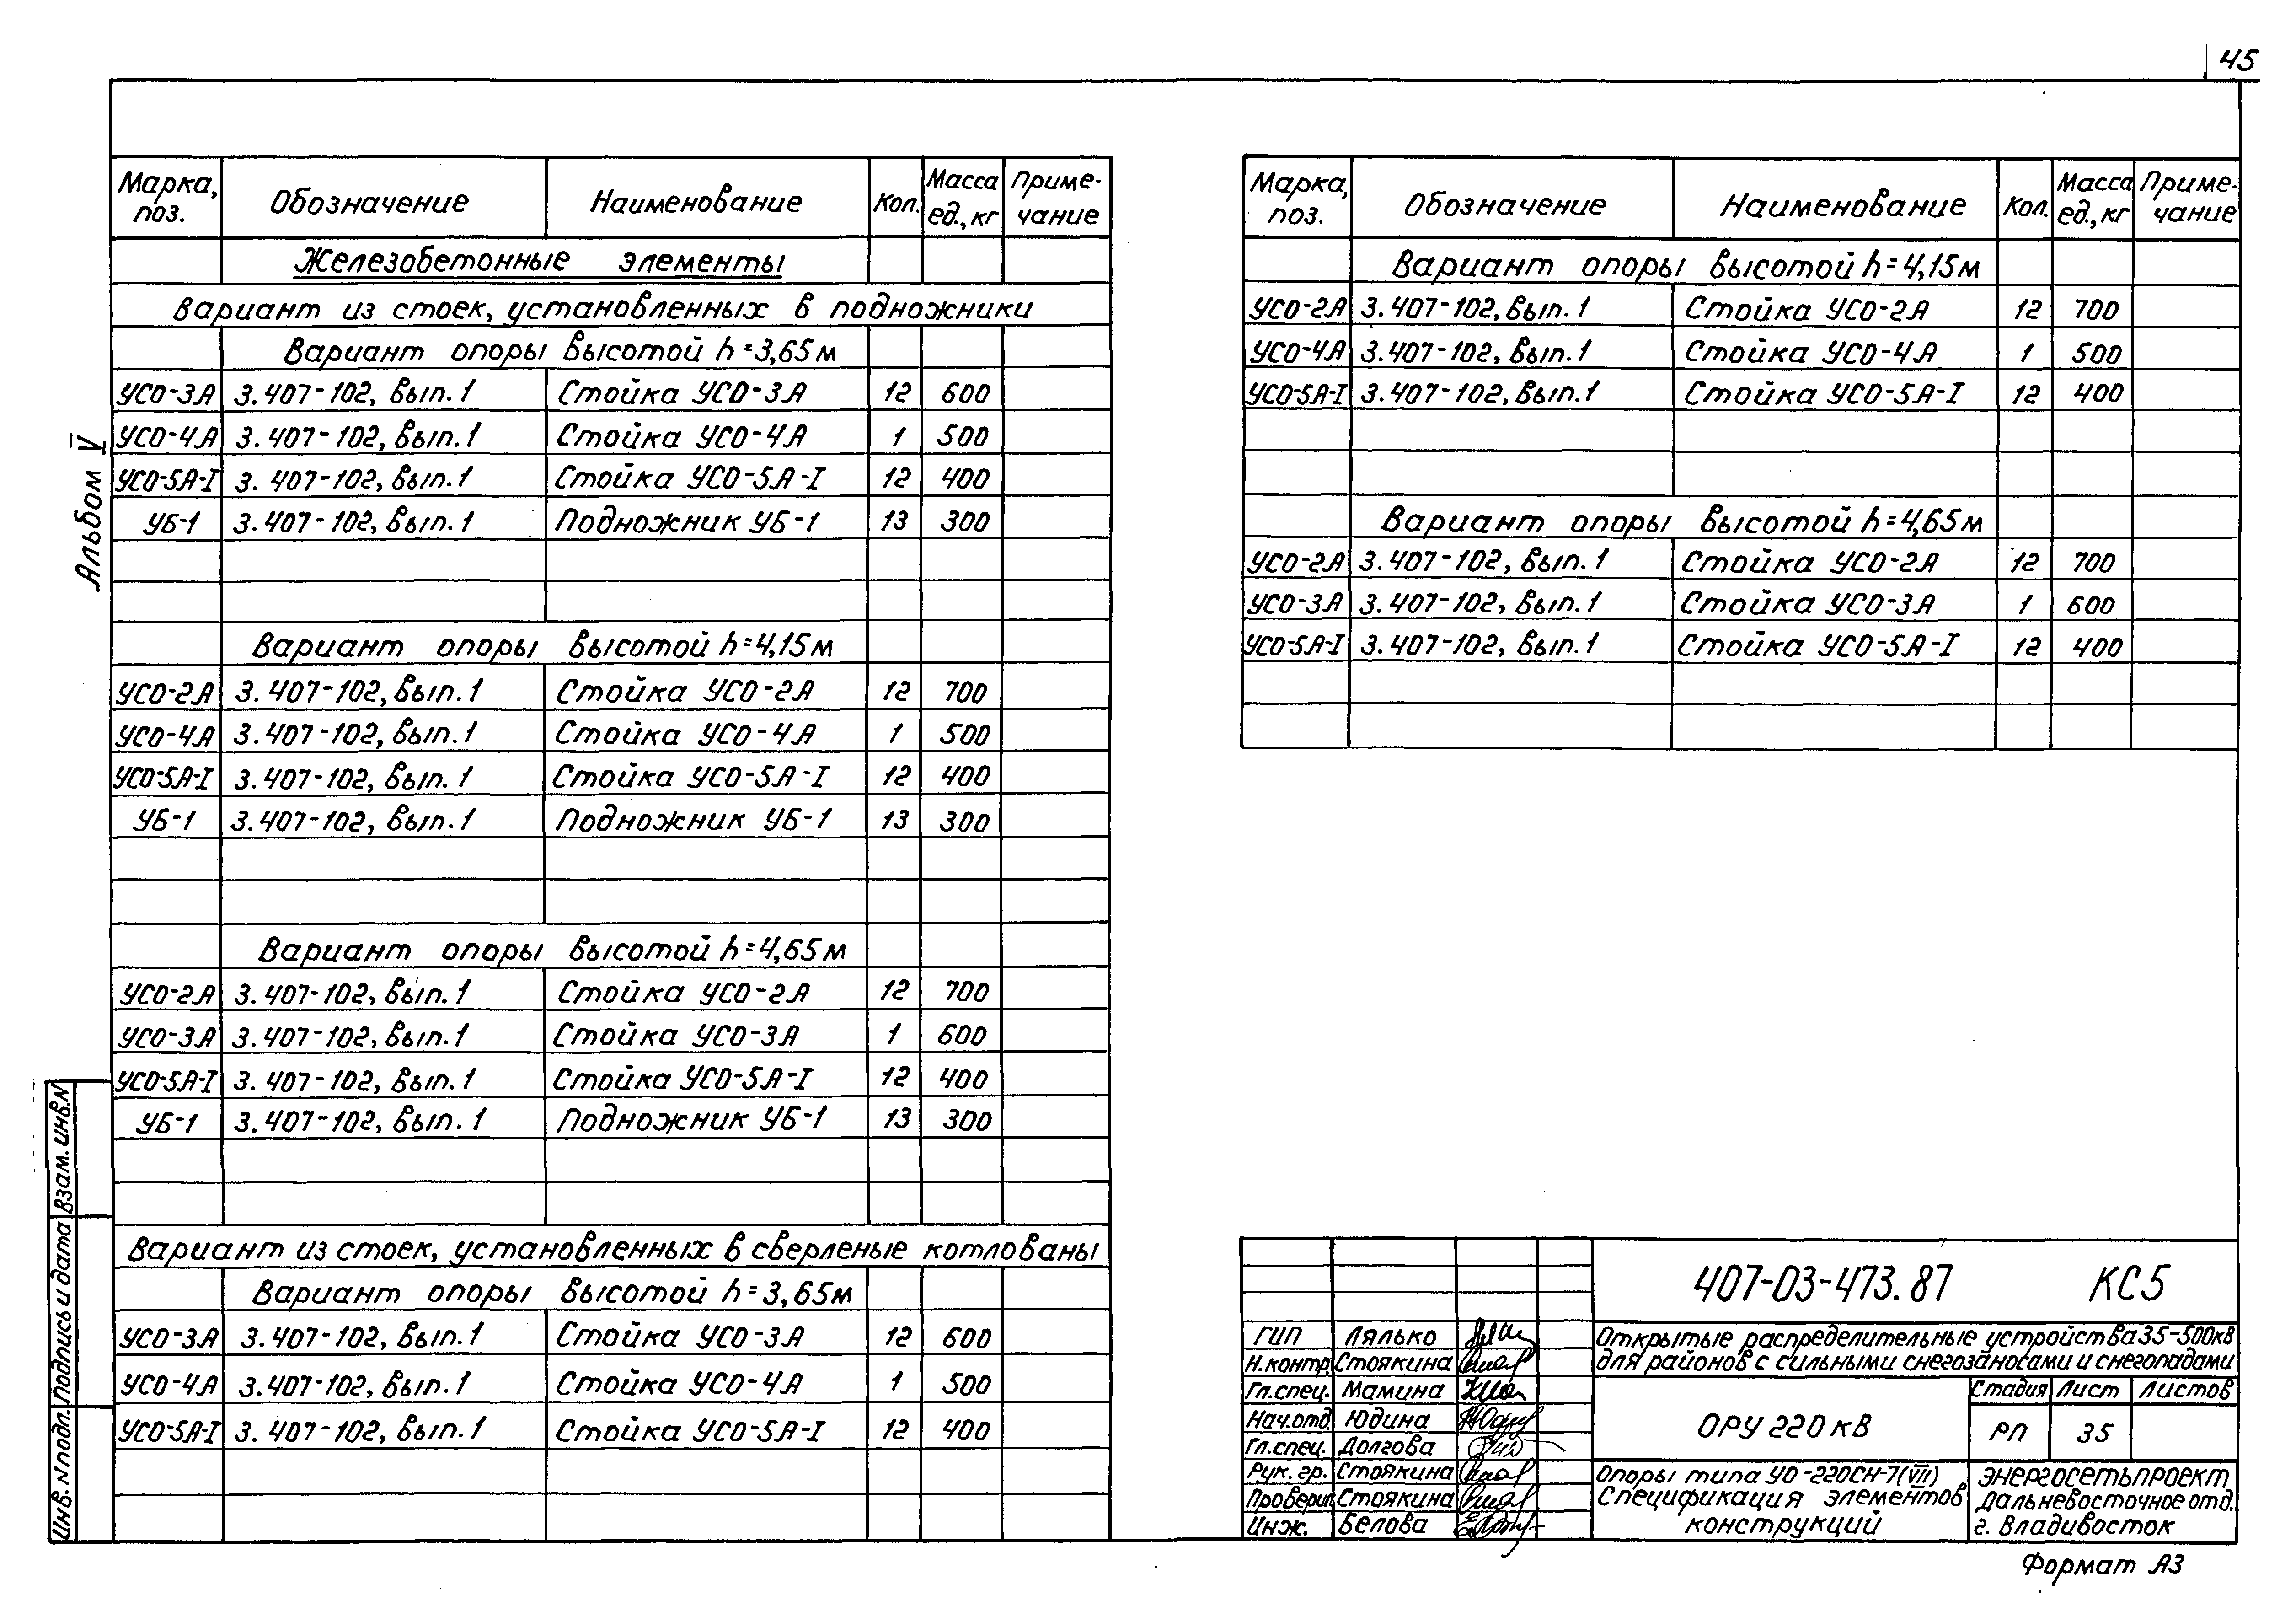 45
Марка, поз. Обозначение Наименование Кол. Масса ед., кг Приме-чание
Железобетонные элементы
Вариант из стоек, установленных в подножники
Вариант опоры высотой h=3,65м
УСО-3А 3.407-102, Вып.1 Стойка УСО-3А 12 600
УСО-4А 3.407-102, Вып.1 Стойка УСО-4А 1 500
УСО-5А-I 3.407-102, Вып.1 Стойка УСО-5А-I 12 400
УБ-1 3.407-102, Вып.1 Подножник УБ-1 13 300
Вариант опоры высотой h=4,15м
УСО-2А 3.407-102, Вып.1 Стойка УСО-2А 12 700
УСО-4А 3.407-102, Вып.1 Стойка УСО-4А 1 500
УСО-5А-I 3.407-102, Вып.1 Стойка УСО-5А-I 12 400
УБ-1 3.407-102, Вып.1 Подножник УБ-1 13 300
Вариант опоры высотой h=4,65м
УСО-2А 3.407-102, Вып.1 Стойка УСО-2А 12 700
УСО-3А 3.407-102, Вып.1 Стойка УСО-3А 1 600
УСО-5А-I 3.407-102, Вып.1 Стойка УСО-5А-I 12 400
УБ-1 3.407-102, Вып.1 Подножник УБ-1 13 300
Вариант из стоек, установленных в сверленые котлованы
Вариант опоры высотой h=3,65м
УСО-3А 3.407-102, Вып.1 Стойка УСО-3А 12 600
УСО-4А 3.407-102, Вып.1 Стойка УСО-4А 1 500
УСО-5А-I 3.407-102, Вып.1 Стойка УСО-5А-I 12 400
Марка, поз. Обозначение Наименование Кол. Масса ед., кг Приме-чание
Вариант опоры высотой h=4,15м
УСО-2А 3.407-102, Вып.1 Стойка УСО-2А 12 700
УСО-4А 3.407-102, Вып.1 Стойка УСО-4А 1 500
УСО-5А-I 3.407-102, Вып.1 Стойка УСО-5А-I 12 400
Вариант опоры высотой h=4,65м
УСО-2А 3.407-102, Вып.1 Стойка УСО-2А 12 700
УСО-3А 3.407-102, Вып.1 Стойка УСО-3А 1 600
УСО-5А-I 3.407-102, Вып.1 Стойка УСО-5А-I 12 400
Альбом V
Взам. инв.N
Подпись и дата
Инв. N подл.
407-03-473.87 КС5
ГИП Лялько
Н.контр. Стоякина
Гл.спец. Мамина
Нач.отд. Юдина
Гл.спец. Долгова
Рук. гр. Стоякина
Проверил Стоякина
Инж. Белова
Открытые распределительные устройства 35-500кВ
для районов с сильными снегозаносами и снегопадами
ОРУ 220 кВ
Стадия Лист Листов
РП 35
Опоры типа УО-220СН-7(VII)
Спецификация элементов
конструкций
Энергосетьпроект
Дальневосточное отд.
г. Владивосток
Формат А3